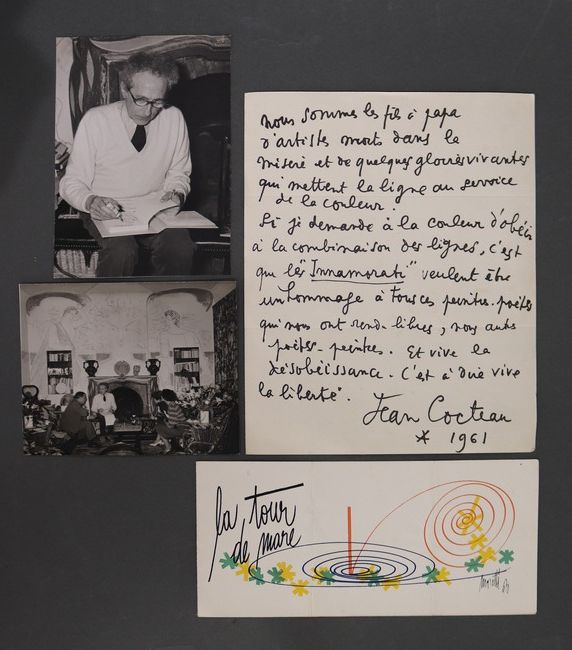 nous sommes les fils à papa
d'artistes morts dans la
misère et de quelques gloires vivantes
qui mettent la ligne au service
de la couleur.
Si je demande à la couleur d'obéir
à la combinaison des lignes, c'est
que les "Innamorati" veulent être
un hommage à tous ces peintres-poètes
qui nous ont rendu libres, nous autres
poètes-peintres. Et vive la
désobéissance. C'est à dire vive
la liberté.
Jean Cocteau
* 1961
la tour
de mare